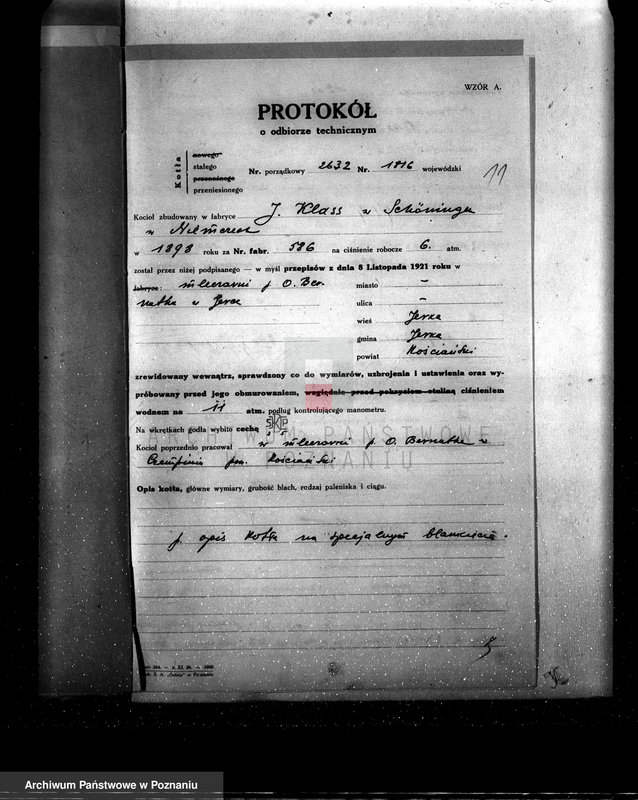 WZÓR A.
PROTOKÓŁ
o odbiorze technicznym
Kotła
nowego
stałego
przenośnego
przeniesionego
Nr. porządkowy 2632 Nr. 1816 wojewódzki
11
Kocioł zbudowany w fabryce J. Klass w Schöningen
w Niemczech
w 1898 roku za Nr. fabr. 586 na ciśnienie robocze 6. atm.
został przez niżej podpisanego — w myśl przepisów z dnia 8 Listopada 1921 roku w
fabryce: mleczarni p. O. Ber-
natka w Jerce
miasto –
ulica –
wieś Jerka
gmina Jerka
powiat Kościański
zrewidowany wewnątrz, sprawdzony co do wymiarów, uzbrojenia i ustawienia oraz wy-
próbowany przed jego obmurowaniem, względnie przed pokryciem otuliną ciśnieniem
wodnem na 11 atm. podług kontrolującego manometru.
Na wkrętkach godła wybito cechę SKP
Kocioł poprzednio pracował w mleczarni p. O. Bernatka w
Czempiniu pow. Kościański
ARCHIWUM PAŃSTWOWE
W POZNANIU
Opis kotła, główne wymiary, grubość blach, rodzaj paleniska i ciągu.
p. opis kotła na specjalnym blankiecie.
264. — 2. XI. 26. — 1000
S. A. „Ostoja" w Poznaniu
Archiwum Państwowe w Poznaniu